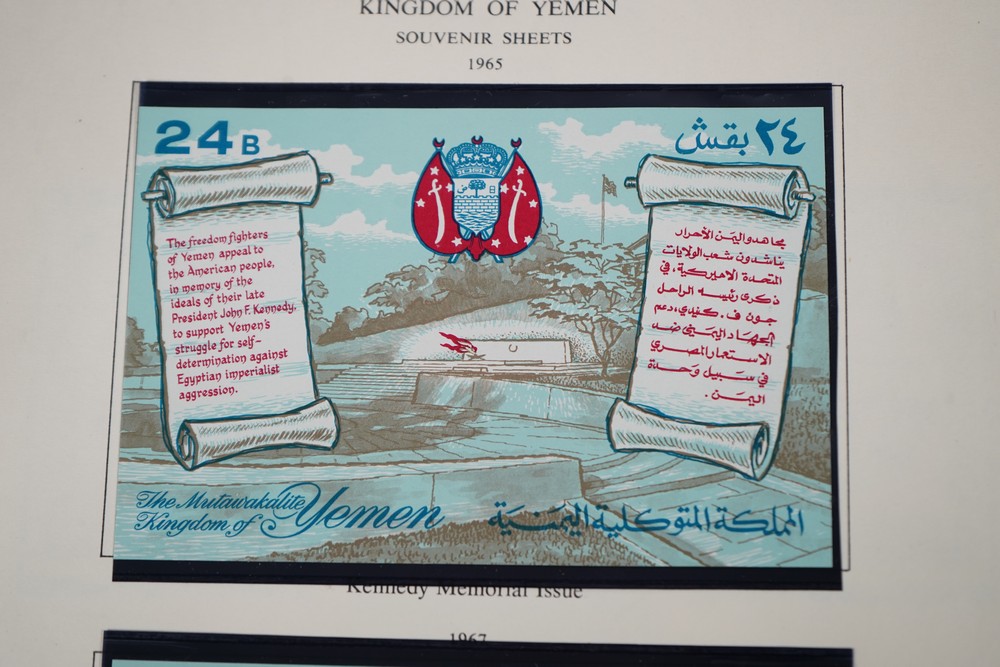 KINGDOM OF YEMEN
SOUVENIR SHEETS
1965
24 B
٢٤ بقش
The freedom fighters
of Yemen appeal to
the American people,
in memory of the
ideals of their late
President John F. Kennedy,
to support Yemen's
struggle for self-
determination against
Egyptian imperialist
aggression.
مجاهدو اليمن الأحرار
يناشدون شعب الولايات
المتحدة الاميركية، في
ذكرى رئيسه الراحل
جون ف. كنيدي، دعم
الجهاد اليمني ضد
الاستعمار المصري
في سبيل وحدة
اليمن.
The Mutawakalite
Kingdom of Yemen
المملكة المتوكلية اليمنية
Kennedy Memorial Issue
1967